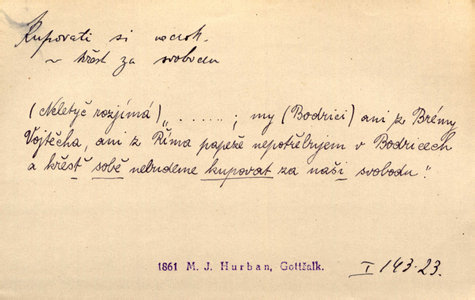 Kupovati si
křest za svobodu
(Neletyč rozjímá) „ . . . . . . ; my (Bodrici) ani z Brémy
Vojtěcha, ani z Říma papeže nepotřebujem v Bodricech
a křest sobě nebudeme kupovat za naši svobodu."
1861 M. J. Hurban, Gottžalk.
I 143.23.